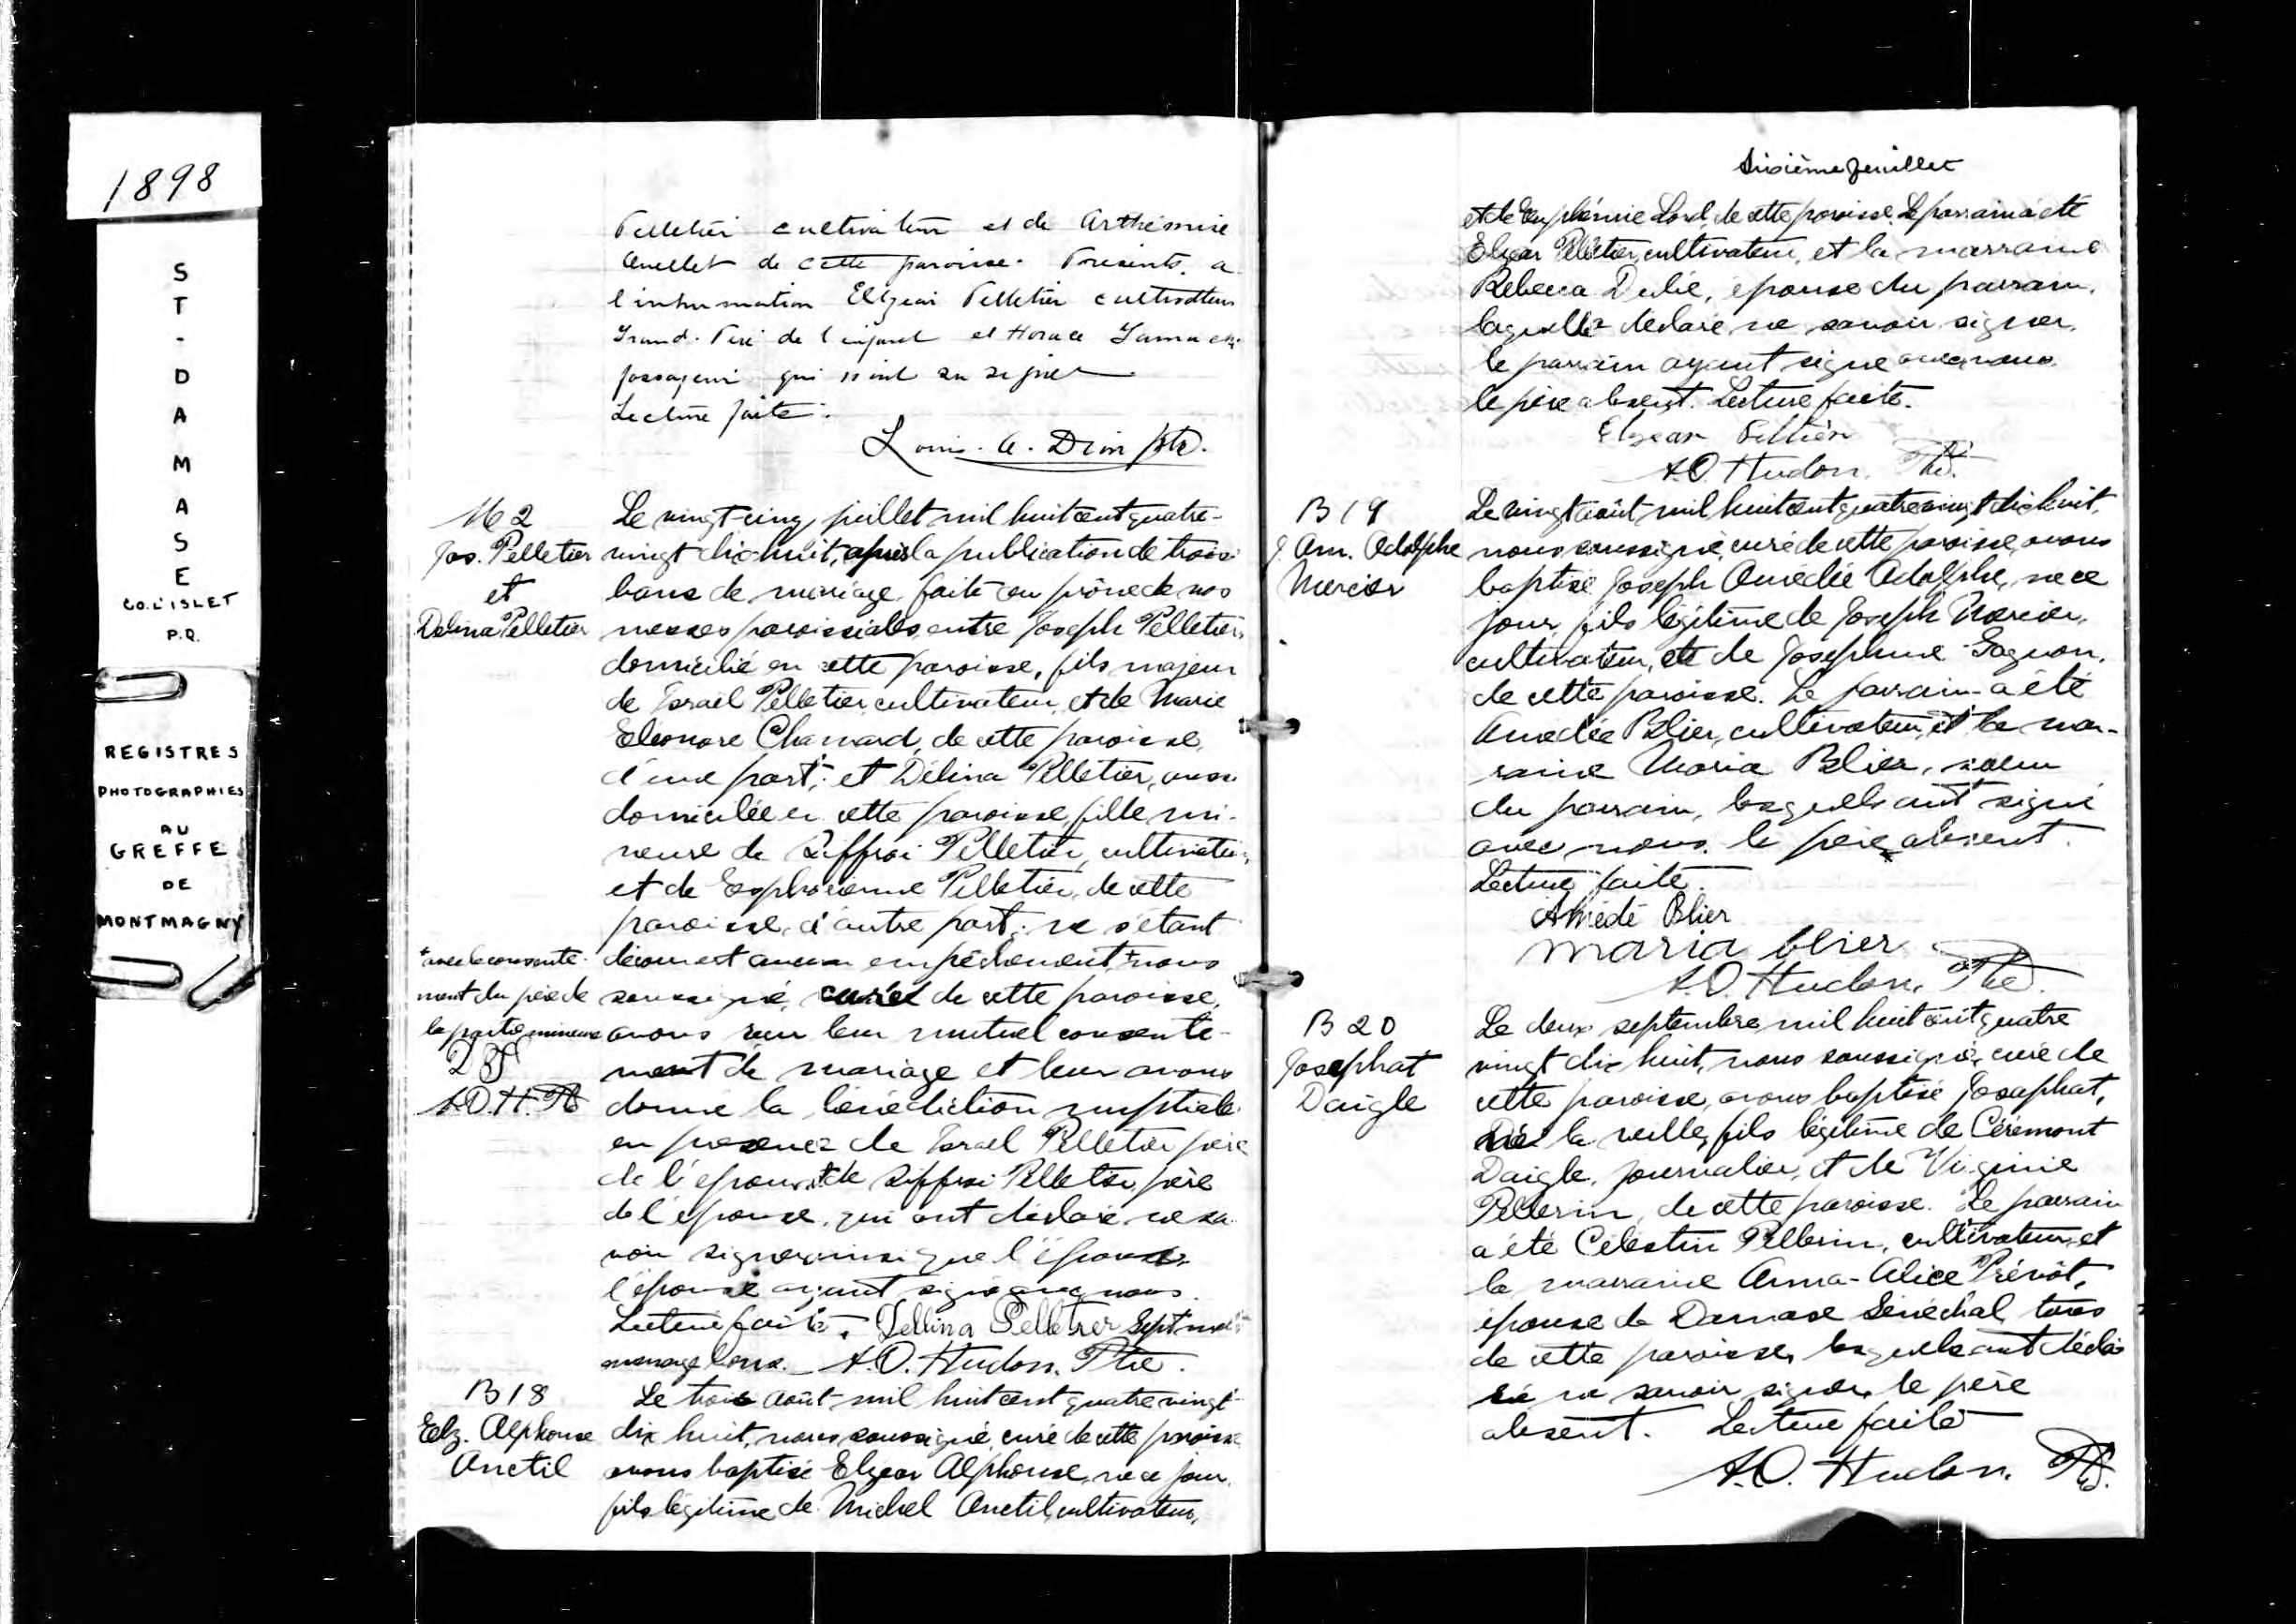 1898
S
T
-
D
A
M
A
S
E
CO. L'ISLET
P.Q.
REGISTRES
PHOTOGRAPHIES
AU
GREFFE
DE
MONTMAGNY
Pelletier cultivateur et de Arthémise
Ouellet de cette paroisse. Présents a
l'inhumation Elzéar Pelletier cultivateur
Grand-Père de l'enfant et Horace
qui n'ont su signer
Lecture faite.
Louis. A. Dion ptr.
M 2
Jos. Pelletier
et
Delina Pelletier
Le vingt-cinq juillet mil huit cent quatre-
vingt dix huit, après la publication de trois
bans de mariage faite au prône de nos
messes paroissiales entre Joseph Pelletier,
domicilié en cette paroisse, fils majeur
de Israel Pelletier cultivateur, et de Marie
Eléonore Chamard, de cette paroisse,
d'une part; et Délina Pelletier, aussi
domiciliée en cette paroisse, fille mi-
neure de Siffroi Pelletier, cultivateur,
et de Euphrosienne Pelletier, de cette
paroisse, d'autre part; ne s'étant
découvert aucun empêchement, + nous
soussigné, curé de cette paroisse,
avons reçu leur mutuel consente-
ment de mariage et leur avons
donné la bénédiction nuptiale
en presence de Israel Pelletier père
de l'époux et de Siffroi Pelletier, père
de l'épouse, qui ont déclaré ne sa-
voir signer ainsi que l'époux,
l'épouse ayant signé avec nous.
Lecture faite. Dellina Pelletier Sept mots
en marge bons. A.O. Hudon, Ptre.
+ avec le consente-
ment du père de
la partie mineure
D P
A.O.H. Ptr
B 18
Elz. Alphonse
Anctil
Le trois août mil huit cent quatre vingt
dix huit, nous soussigné, curé de cette paroisse
avons baptisé Elzear Alphonse, né ce jour,
fils légitime de Michel Anctil, cultivateur,
Sixième feuillet
et de Euphémie Lord, de cette paroisse. Le parrain a été
Elzear Pelletier, cultivateur, et la marraine
Rebecca Dubé, épouse du parrain,
laquelle a déclaré ne savoir signer,
le parrain ayant signé avec nous.
le père absent. Lecture faite.
Elzear Peltier
A.O. Hudon, Ptr.
B 19
J. Am. Adolphe
Mercier
Le vingt août mil huit cent quatre vingt dix huit,
nous soussigné, curé de cette paroisse, avons
baptisé Joseph Amédée Adolphe, né ce
jour, fils légitime de Joseph Mercier,
cultivateur, et de Josephine Gagnon,
de cette paroisse. Le parrain a été
Amédée Blier, cultivateur, et la mar-
raine Maria Blier, soeur
du parrain, lesquels ont signé
avec nous. le père absent.
Lecture faite.
Amédé Blier
Maria blier
A.O. Hudon, Ptre.
B 20
Josephat
Daigle
Le deux septembre mil huit cent quatre
vingt dix huit, nous soussigné, curé de
cette paroisse, avons baptisé Josaphat,
né la veille, fils légitime de Cérémont
Daigle, journalier, et de Virginie
Pellerin, de cette paroisse. Le parrain
a été Célestin Pellerin, cultivateur, et
la marraine Anna-Alice Prévôt,
épouse de Damase Sénéchal, tous
de cette paroisse, lesquels ont décla-
ré ne savoir signer, le père
absent. Lecture faite
A.O. Hudon, Ptr.